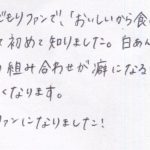 どもりファンで、「おいしいから食
て初めて知りました。白あん
の組み合わせが癖になる
くなります。
ファンになりました!